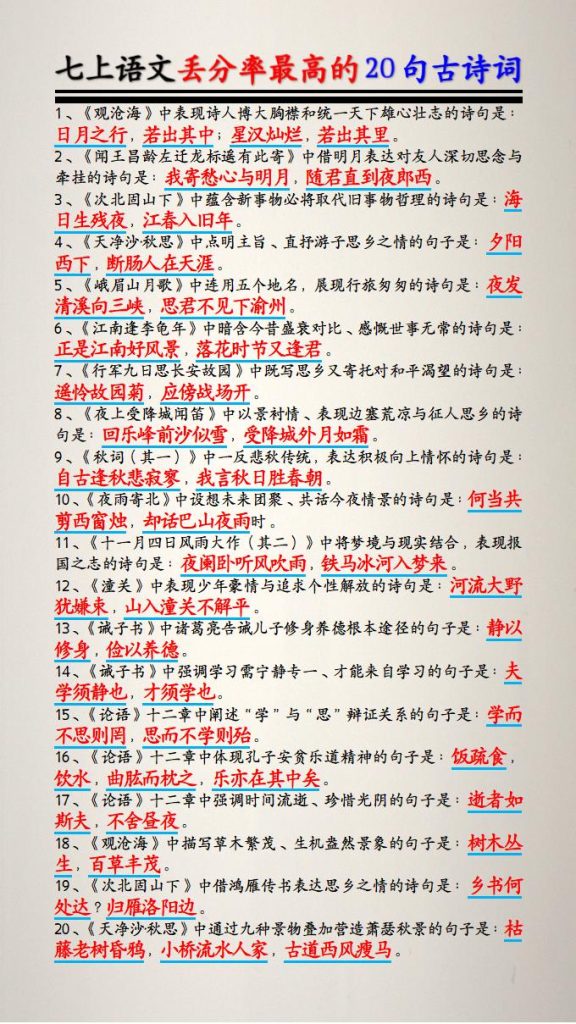 七上语文丢分率最高的20句古诗词
1、《观沧海》中表现诗人博大胸襟和统一天下雄心壮志的诗句是：
日月之行，若出其中；星汉灿烂，若出其里。
2、《闻王昌龄左迁龙标遥有此寄》中借明月表达对友人深切思念与
牵挂的诗句是：我寄愁心与明月，随君直到夜郎西。
3、《次北固山下》中蕴含新事物必将取代旧事物哲理的诗句是：海
日生残夜，江春入旧年。
4、《天净沙秋思》中点明主旨、直抒游子思乡之情的句子是：夕阳
西下，断肠人在天涯。
5、《峨眉山月歌》中连用五个地名，展现行旅匆匆的诗句是：夜发
清溪向三峡，思君不见下渝州。
6、《江南逢李龟年》中暗含今昔盛衰对比、感慨世事无常的诗句是：
正是江南好风景，落花时节又逢君。
7、《行军九日思长安故园》中既写思乡又寄托对和平渴望的诗句是：
遥怜故园菊，应傍战场开。
8、《夜上受降城闻笛》中以景衬情、表现边塞荒凉与征人思乡的诗
句是：回乐峰前沙似雪，受降城外月如霜。
9、《秋词（其一）》中一反悲秋传统，表达积极向上情怀的诗句是：
自古逢秋悲寂寥，我言秋日胜春朝。
10、《夜雨寄北》中设想未来团聚、共话今夜情景的诗句是：何当共
剪西窗烛，却话巴山夜雨时。
11、《十一月四日风雨大作（其二）》中将梦境与现实结合，表现报
国之志的诗句是：夜阑卧听风吹雨，铁马冰河入梦来。
12、《潼关》中表现少年豪情与追求个性解放的诗句是：河流大野
犹嫌束，山入潼关不解平。
13、《诫子书》中诸葛亮告诫儿子修身养德根本途径的句子是：静以
修身，俭以养德。
14、《诫子书》中强调学习需宁静专一、才能来自学习的句子是：夫
学须静也，才须学也。
15、《论语》十二章中阐述“学”与“思”辩证关系的句子是：学而
不思则罔，思而不学则殆。
16、《论语》十二章中体现孔子安贫乐道精神的句子是：饭疏食，
饮水，曲肱而枕之，乐亦在其中矣。
17、《论语》十二章中强调时间流逝、珍惜光阴的句子是：逝者如
斯夫，不舍昼夜。
18、《观沧海》中描写草木繁茂、生机盎然景象的句子是：树木丛
生，百草丰茂。
19、《次北固山下》中借鸿雁传书表达思乡之情的诗句是：乡书何
处达？归雁洛阳边。
20、《天净沙秋思》中通过九种景物叠加营造萧瑟秋景的句子是：枯
藤老树昏鸦，小桥流水人家，古道西风瘦马。